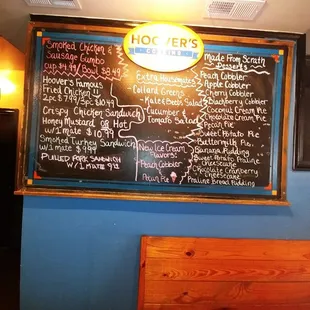 HOOVER'S
COOKING
Smoked Chicken &
Sausage Gumbo
cup $4.99/Bowl $8.49
Hoover's Famous
Fried Chicken!!
Crispy Chicken Sandwich
Honey Mustard or Hot
w/1 mate $10.99
Smoked Turkey Sandwich
w/1 mate $9.99
Pulled Pork Sandwich
w/1 mate
Extra Housemates
Collard Greens
Kale & Bean Salad
Cucumber &
Tomato Salad
New Ice Cream
Flavors:
Peach Cobbler
Pecan Pie
Made From Scratch
Desserts
Peach Cobbler
Apple Cobbler
Cherry Cobbler
Blackberry Cobbler
Coconut Cream Pie
Chocolate Cream Pie
Pecan Pie
Sweet Potato Pie
Buttermilk Pie
Banana Pudding
Sweet Potato Praline
Cheesecake
Chocolate Cranberry
Cheesecake
Praline Bread Pudding